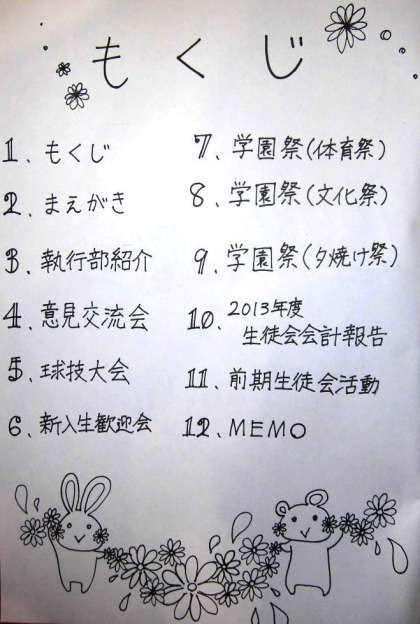 もくじ
1、もくじ
2、まえがき
3、執行部紹介
4、意見交流会
5、球技大会
6、新入生歓迎会
7、学園祭(体育祭)
8、学園祭(文化祭)
9、学園祭(夕焼け祭)
10、2013年度
生徒会会計報告
11、前期生徒会活動
12、MEMO